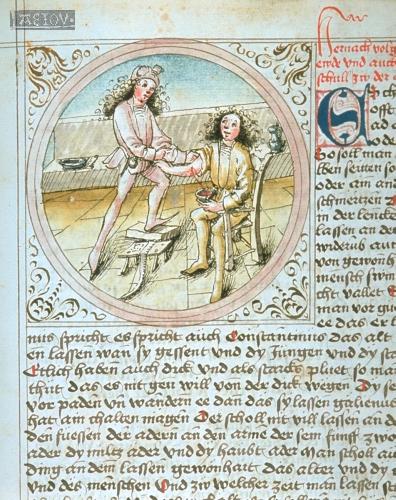 AEIOV
Hernach volg
emde vnd auch
schull zw der a
So soll man
oder an and
schmertzen
in der lencke
lassen an de
widerub aut
von gewonh
mensch swin
cht vallet
man vor gut
ee das er l
mus spricht es spricht auch Constantinus das alt
en lassen wan sy gessent vnd dy Jungen vnd dy sta
Etlich haben auch dick vnd als starck pluet so man
thut das es nit gen will von der dick wegen Dy se
vor paden vn wandern ee dan das sy lassen galienus
hat aim chalten magen Der scholl mit vill lassen an d
den fuessen der adern an den arme der sein funff zwo
ader dy miltz ader vnd dy haubt ader Man scholl auch
ding an dem lassen gewonhait das alter vnd dy
vnd des menschen Vnd zw welcher zeit man lassen